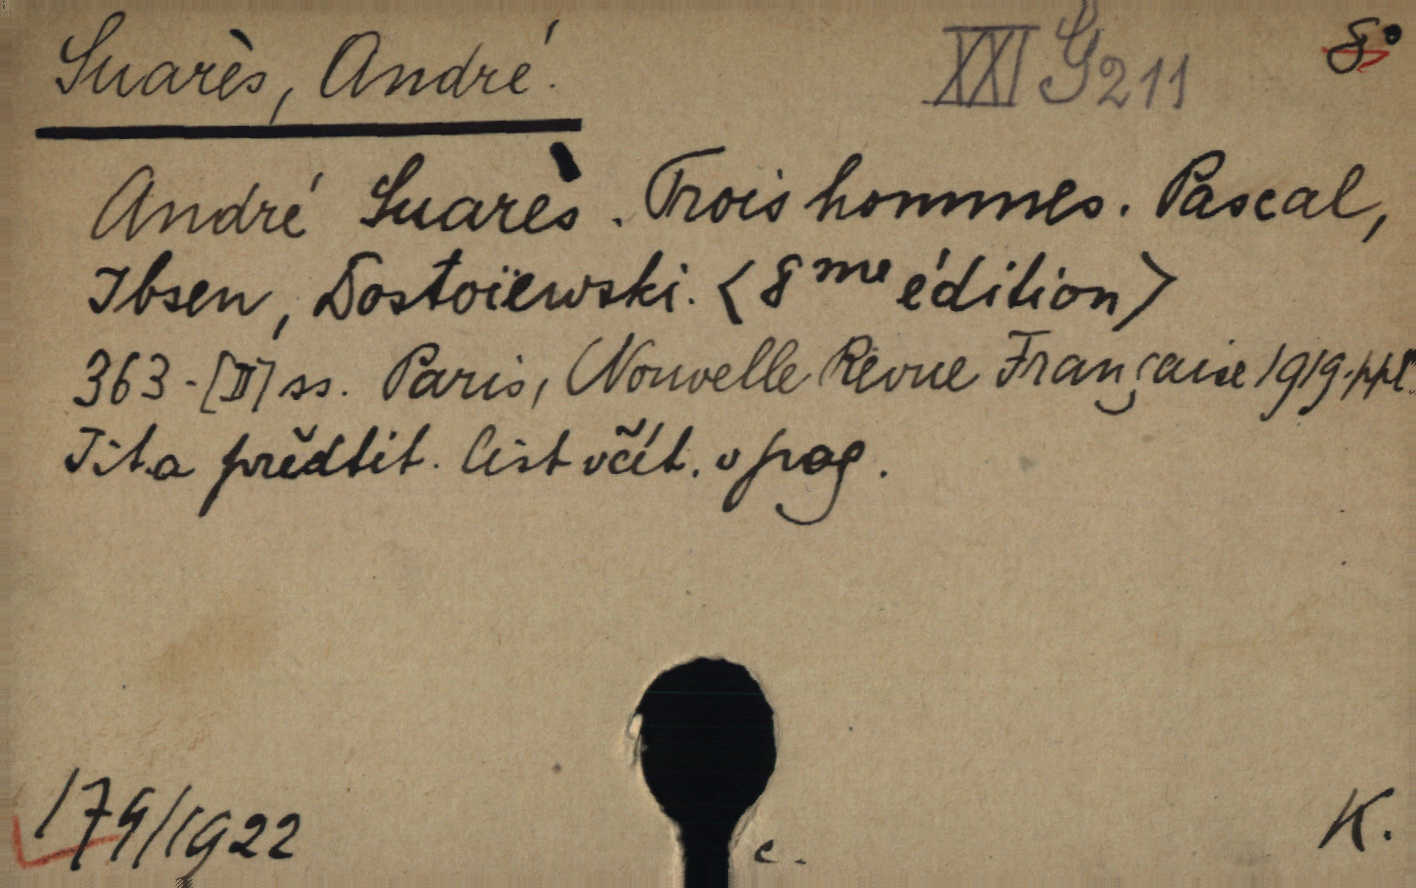 Suarès, André.
XXI G 211
8°
André Suarès. Trois hommes. Pascal,
Ibsen, Dostoïewski. <8me édition>
363-[II] ss. Paris, Nouvelle Revue Française 1919.
Tit. a předtit. list včít. v pag.
179/1922
c.
K.